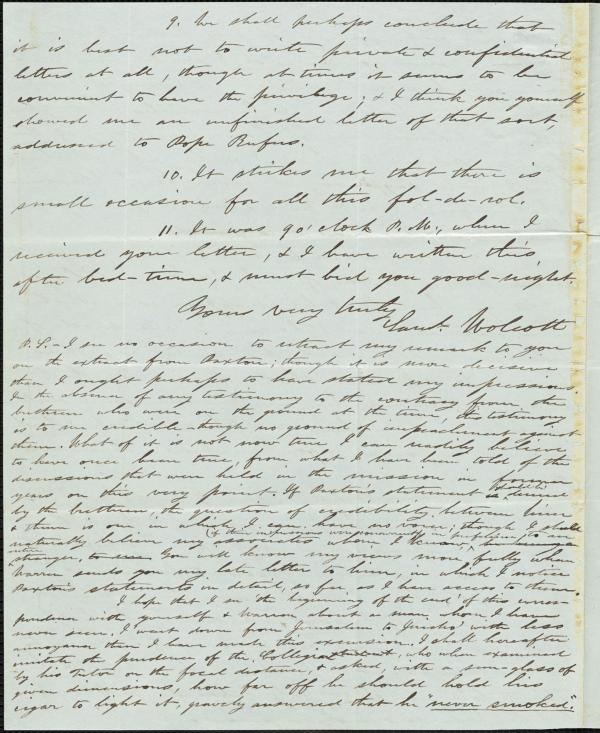 9. We shall perhaps conclude that
it is best not to write private & confidential
letters at all, though at times it seems to be
convenient to have the privilege; & I think you yourself
showed me an unfinished letter of that sort,
addressed to Pope Rufus.
10. It strikes me that there is
small occasion for all this fol-de-rol.
11. It was 9 o'clock P.M., when I
received your letter, & I have written this,
after bed-time, & must bid you good-night.
Yours very truly
Saml. Wolcott
P.S. - I see no occasion to retract my remark to you
on the extract from Paxton; though it is more decisive
than I ought perhaps to have stated my impressions.
In the absence of any testimony to the contrary from the
brethren who were on the ground at the time, his testimony
is to me credible - though no ground of impeachment against
them. What of it is not now true I can readily believe
to have once been true, from what I have been told of the
discussions that were held in the mission in former
years on this very point. If Paxton's statement is denied
by the brethren, the question of credibility between him
& them is one in which I can have no voice; though I shall
naturally believe my associates whom I
stranger, You will know my views more fully when
Warren sends you my late letter to him, in which I notice
Paxton's statements in detail, so far as I have access to them.
I hope that I see 'the beginning of the end' of this corres-
pondence with yourself & Warren about a man whom I have
never seen. I went down from Jerusalem to Jericho with less
annoyance than I have made this excursion. I shall hereafter
imitate the prudence of the Collegian, who when examined
by his Tutor on the focal distance, & asked, with a sun-glass of
given dimensions, how far off he should hold his
cigar to light it, gravely answered that he "never smoked".